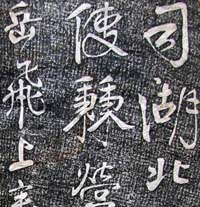 司湖北
使兼營
岳飛上言